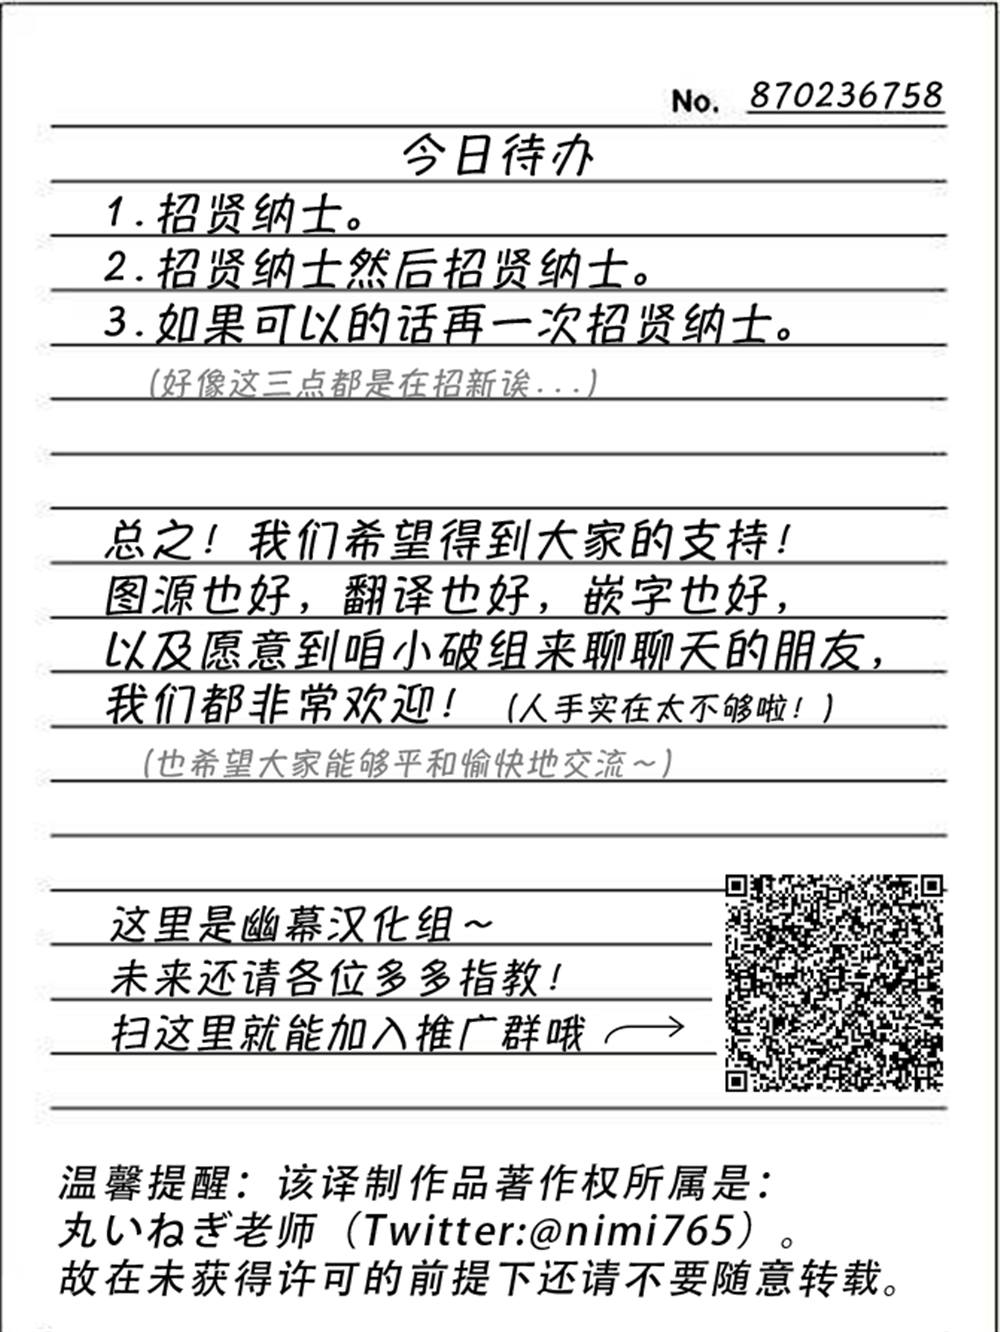 No. 870236758
今日待办
1.招贤纳士。
2.招贤纳士然后招贤纳士。
3.如果可以的话再一次招贤纳士。
(好像这三点都是在招新诶...)
总之！我们希望得到大家的支持！
图源也好，翻译也好，嵌字也好，
以及愿意到咱小破组来聊聊天的朋友，
我们都非常欢迎！ (人手实在太不够啦！)
(也希望大家能够平和愉快地交流～)
这里是幽幕汉化组～
未来还请各位多多指教！
扫这里就能加入推广群哦
温馨提醒：该译制作品著作权所属是：
丸いねぎ老师（Twitter:@nimi765）。
故在未获得许可的前提下还请不要随意转载。